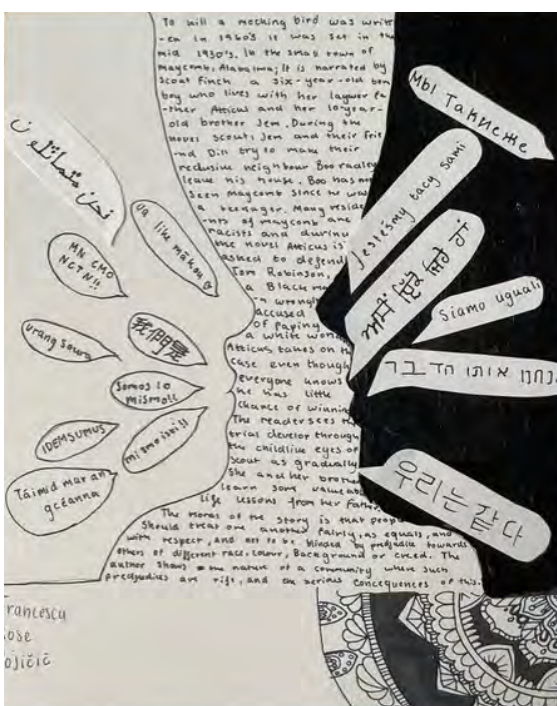 To kill a mocking bird was writt
-en in 1960's it was set in the
mid 1930's. In the small town of
maycomb, Alabalma; It is narrated by
Scout Finch a six-year-old tom
boy who lives with her laywer fa
-ther Atticus and her 10-year-
old brother Jem. During the
novel Scout, Jem and their frie
-nd Dill try to make their
reclusive neighbour Boo raaley
leave his house. Boo has not
seen maycomb since he was
a teenager. Many reside
-nts of maycomb are
racists and during
the novel Atticus is
asked to defend
Tom Robinson,
a Black ma
-n wrongly
accused
of raping
a white woma
Atticus takes on the
case even though
everyone knows
he has little
chance of winning
The reader sees the
trial develop through
the childlike eyes of
Scout as gradually
She and her brother
learn som valuable
life lessons from her Father.
The moras of the story is that people
Should treat one another fairly, as equals, and
with respect, and not to be blinded by prejudice towards
others of different race, colour, Background or creed. The
author shows the nature of a community where such
predjudias are rife, and the serious consequences of this.
نحن متماثلون
ua like mākou
MN CMO
NCTN!!
我們是
urang sarua
somos lo
mismo!!
IDEMSUMUS
mi smo isti!!
Táimid mar an
gcéanna
Мы такиеже
Jesteśmy tacy sami
ਅਸੀਂ ਇੱਕੋ ਜਿਹੇ ਹਾਂ
Siamo uguali
אנחנו אותו הדבר
우리는 같다
Francesca
Rose
ojičič